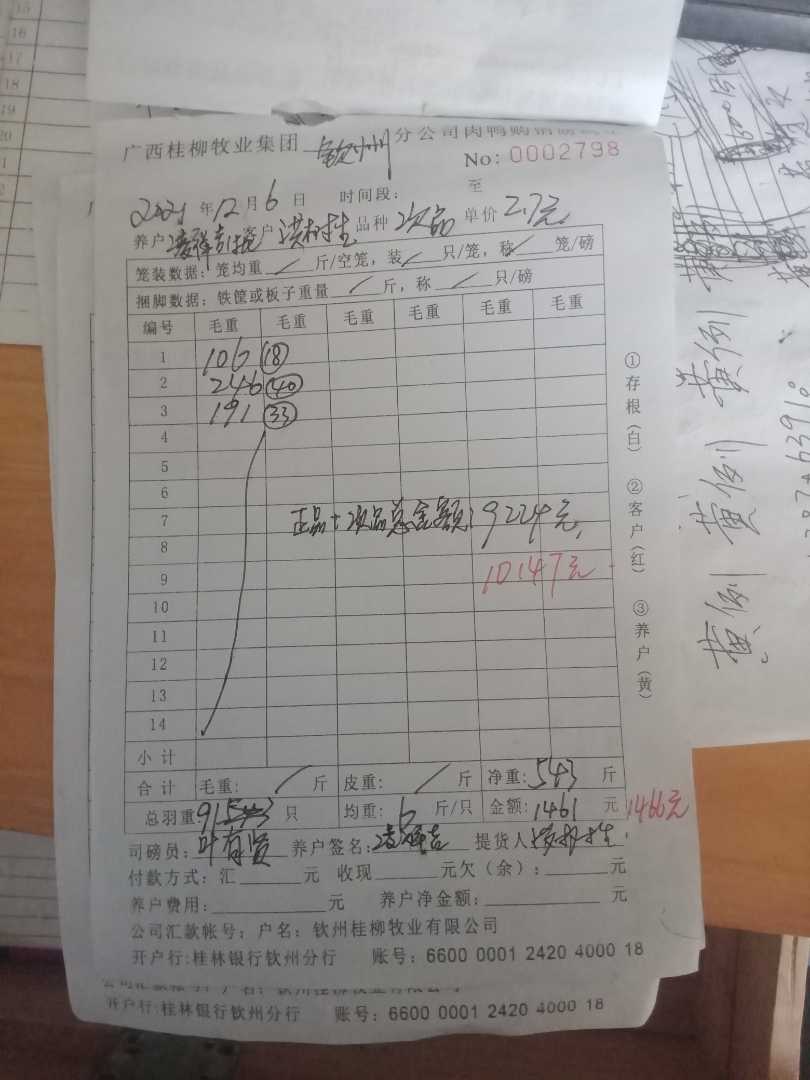 广西桂柳牧业集团 钦州 分公司肉鸭购销
No: 0002798
2021 年 12 月 6 日 时间段: 至
养户 客户 洪树生 品种 次品 单价 2.7元
笼装数据: 笼均重 / 斤/空笼, 装 / 只/笼, 称 / 笼/磅
捆脚数据: 铁筐或板子重量 / 斤, 称 / 只/磅
编号 毛重 毛重 毛重 毛重 毛重 毛重
1 106 18
2 246 40
3 191 33
4
5
6
7 正品+次品总金额: 9224元
8
9 10147元
10
11
12
13
14
小计
合计 毛重: / 斤 皮重: / 斤 净重: 543 斤
总羽重 91 只 均重: 6 斤/只 金额: 1461 元 1466元
司磅员: 叶有贤 养户签名: 提货人
付款方式: 汇 元 收现 元欠(余): 元
养户费用: 元 养户净金额: 元
公司汇款帐号; 户名: 钦州桂柳牧业有限公司
开户行:桂林银行钦州分行 账号: 6600 0001 2420 4000 18
①存根(白) ②客户(红) ③养户(黄)
开户行:桂林银行钦州分行 账号: 6600 0001 2420 4000 18
15
16
17
18
19
20